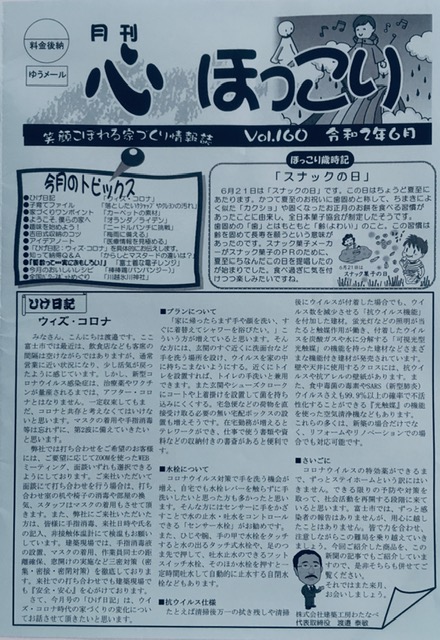 料金後納
ゆうメール
月刊
心 ほっこり
笑顔こぼれる家づくり情報誌
Vol.160 令和2年6月
今月のトピックス
●ひげ日記
●子育てファイル
●家づくりワンポイント
●ようこそ、僕らの家へ
●趣味を始めよう!
●吉田式収納のコツ
●アイデアノート
●知って納得Q&A
●今月のおいしいレシピ
「ウィズ・コロナ」
「カーペットの素材」
「オランダ/ライデン」
「梅雨に備える」
「医療情報を見極める」
「からしとマスタードの違いは?」
「富士芸な電子レンジ」
「棒棒鶏(バンバンジー)」
「川越氷川神社」
ほっこり歳時記
「スナックの日」
6月21日は「スナックの日」です。この日はちょうど夏至に
あたります。かつて夏至のお祝いに歯固めと称して、ちまきによ
く似た「カクショ」や固くなったお正月のお餅を食べる習慣が
あったことに由来し、全日本菓子協会が制定したそうです。
歯固めの「歯」とはもともと「齢(よわい)」のこと。この習慣は
齢を固めて長寿を願うという意味が
あったのです。スナック菓子メーカ
ーがスナック菓子のPRのために、
夏至にちなんだこの日を登場したの
が始まりでした。食べ過ぎに気を付
けつつ楽しみたいですね。
6月21日は
スナック菓子の日
ひげ日記
ウィズ・コロナ
みなさん、こんにちは渡邉です。ここ
富士市では最近は、飲食店なども客席の
間隔は空けながらではありますが、通常
営業に近い状況になり、少し活気が戻っ
たように感じています。しかし、新型コ
ロナウイルス感染症は、治療薬やワクチン
が量産されるまでは、アフター・コロナ
とはなりません。一定収束してもまだ、
コロナと共存と考えなくてはいけないと
思います。マスクの着用や手指消毒
等は忘れずに、第2波に備えていきたい
と思います。
弊社では打ち合わせをご希望のお客様
には、ご要望に応じてZOOMを使ったWEB
ミーティング、面談いずれも選択できる
ようにしております。ご来社いただいて
面談にて打ち合わせを行う場合は、打ち
合わせ室の机や椅子の消毒や部屋の換
気、スタッフはマスクの着用もさせて頂
きます。また、弊社にご来社いただいた
方は、皆様に手指消毒、来社日時や氏名
の記入、非接触体温計にて検温もお願い
しています。建築現場では、手指消毒液
の設置、マスクの着用、作業員同士の距
離確保、窓開けの実施など三密対策（密
集・密接・密閉対策）を徹底しておりま
す。来社での打ち合わせでも建築現場で
も『安全・安心』を心がけております。
さて、今月号の「ひげ日記」は、ウィ
ズ・コロナ時代の家づくりの変化につい
てお話させて頂きたいと思います。
■プランについて
「家に帰ったらまず手や顔を洗い、す
ぐに着替えてシャワーを浴びたい。」こ
ういう方が増えていると思います。そん
な方には、玄関のすぐ近くに洗面台など
手を洗う場所を設け、ウイルスを家の中
に持ちこまないようにする。近くにトイレ
を設置すれば、トイレの手洗いと兼用
できます。また玄関やシューズクローク
にコートや上着掛けを設置して菌を持ち
込みにくくする。宅急便などの荷物を直
接受け取る必要の無い宅配ボックスの設
置も増えそうです。在宅勤務が増えると
テレワークができ、仕事で使う書類や資
料などの収納付きの書斎があると便利で
す。
■水栓について
コロナウイルス対策で手を洗う機会が
増え、自宅でも水栓レバーを触らずに手
洗いしたいと思った方も多かったと思い
ます。そんな方にはセンサーに手をかざす
ことで水の出し・止水をコントロール
できる「センサー水栓」がお勧めです。
また、ひじや腕、手の甲で水栓をタッチ
すると水の出るタッチ式水栓や、足のつ
ま先で押して、吐水止水のできるフット
スイッチ水栓、そのほか水栓を押すと一
定時間吐水して自動的に止水する自閉水
栓などもあります。
■抗ウイルス仕様
たとえば清掃後万一の拭き残しや清掃
後にウイルスが付着した場合でも、ウイ
ルス数を減少させる「抗ウイルス機能」
を付加した建材、蛍光灯などの照明が当
たると触媒作用が働き、付着したウイル
スを炭酸ガスや水に分解する「可視光型
光触媒」の機能を持った建材などさまざ
まな機能付き建材が発売されています。
壁や天井に使用するクロスには、抗ウイ
ルスや抗アレルの製品があります。ま
た、食中毒菌の毒素やSARS（新型肺炎）
ウイルスさえも99.9％以上の確率で不活
性化することができる「光触媒」の機能
を使った空気清浄機なども あります。
これらの多くは、新築の場合だけでな
く、リフォームやリノベーションでの場
合でも対応可能です。
■さいごに
コロナウイルスの特効薬ができるま
で、ずっとステイホームという訳にはい
きません。できる限りの予防や対策を
取って、社会活動を再開する段階に来て
いると思います。富士市では、ずっと感
染者の報告はありませんが、用心に越し
たことはありません。皆で力を合わせ、
注意しながらこの難局を乗り越えていき
ましょう。今回ご紹介した商品を、この
新聞の記事でもご紹介してい
ますので、是非そちらも併せてご
覧ください。
それではまた来月、お
会いしましょう。
株式会社建築工房わたなべ
代表取締役 渡邉 泰敏